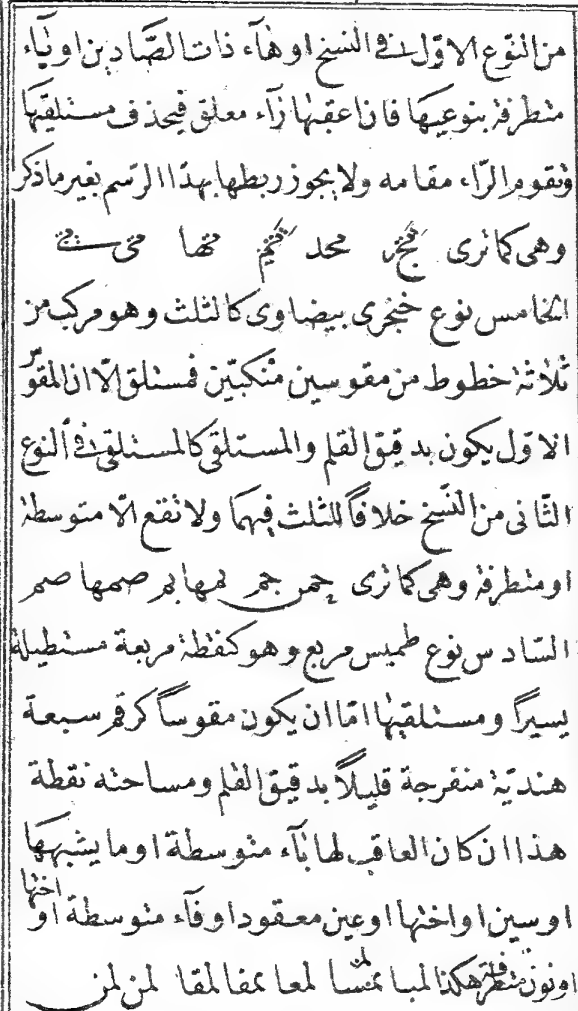 من النوع الاوّل فى النسخ او هآء ذات الصّادين او يٓاء
متطرفة بنوعيها فان اعقبها رٓاء معلق فيحذف مستلقيها
وتقوم الرّاء مقامه ولا يجوز ربطها بهذا الرسم بغير ماذكر
وهى كماترى محد متها متى
الخامس نوع خنجرى بيضاوى كالثلث وهو مركب من
ثلاثة خطوط من مقوسين منكبّين فمستلق الّا ان المقوّر
الاوّل يكون بدقيق القلم والمستلقى كالمستلقى فى النوع
الثّانى من النسخ خلافاً للثلث فيهما ولا تقع الّا متوسطة
او متطرفة وهى كماترى جمن جمر لمها لمر صمها صمر
السّادس نوع طميس مربع وهو كنقطة مربعة مستطيلة
يسيراً ومستلقيها امّا ان يكون مقوساً كرقم سبعة
هنديّة منفرجة قليلاً بدقيق القلم ومساحته نقطة
هذا ان كان العاقب لها بٓاء متوسطة او ما يشبهها
او سين او اختها او عين معقود او فٓاء متوسطة او اختها
او نون متطرفة هكذا لمبا لمسا لمعا عفا لمقا لمن لمن